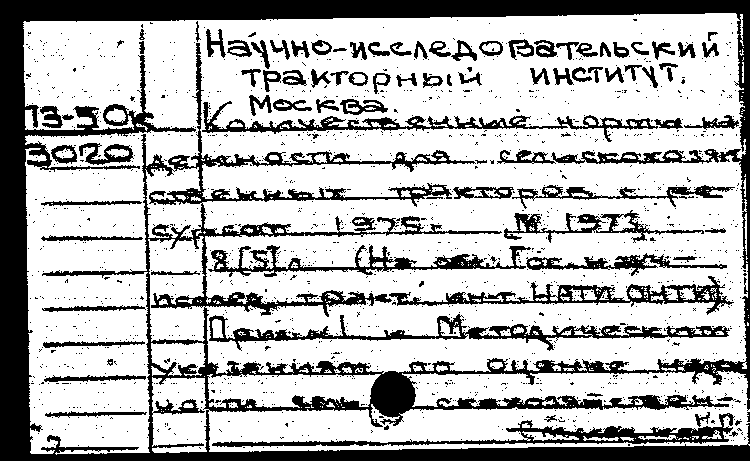 Научно-исследовательский
тракторный институт.
Москва.
П3-50к
3020
Количественные нормы на-
дежности для сельскохозяй-
ственных тракторов с ре-
сурсом 1975г. М, 1973.
8,[5] л. (На обл.: Гос. науч-
исслед. тракт. ин-т. НАТИ. ОНТИ).
Прил. к Методическим
указаниям по оценке надеж-
ности сель скохозяйствен-
н.п.